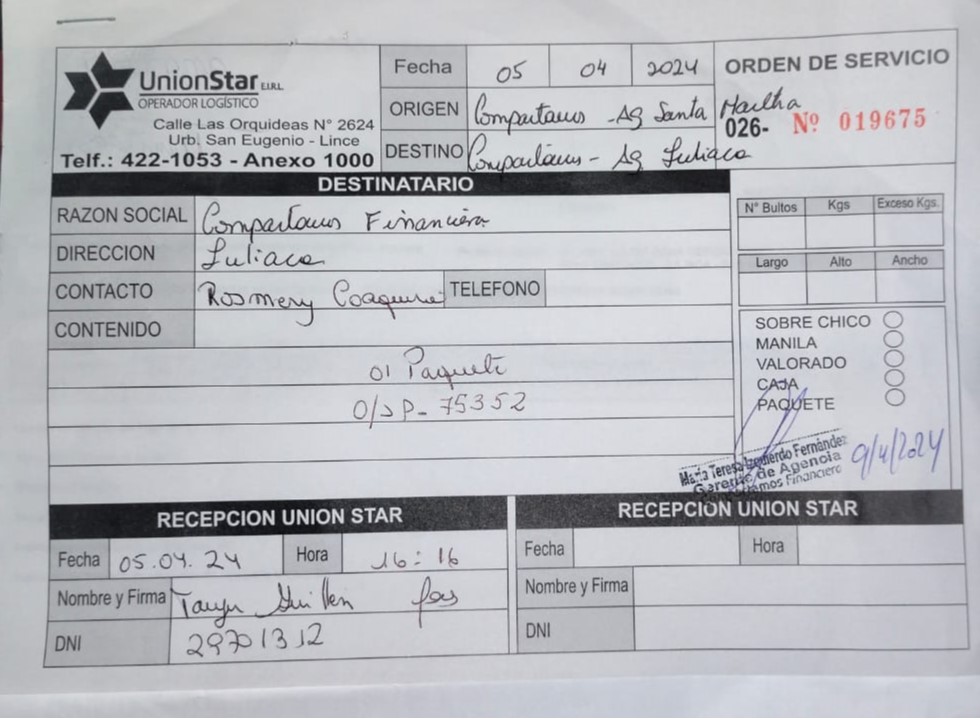 UnionStar E.I.R.L
OPERADOR LOGÍSTICO
Calle Las Orquideas N° 2624
Urb. San Eugenio - Lince
Telf.: 422-1053 - Anexo 1000
Fecha 05 04 2024
ORIGEN Compartamos - Ag Santa Martha
DESTINO Compartamos - Ag Juliaca
ORDEN DE SERVICIO
026- Nº 019675
DESTINATARIO
RAZON SOCIAL Compartamos Financiera
DIRECCION Juliaca
CONTACTO Rosmery Coaquira TELEFONO
CONTENIDO
01 Paquete
O/S P- 75352
N° Bultos Kgs Exceso Kgs.
Largo Alto Ancho
SOBRE CHICO
MANILA
VALORADO
CAJA
PAQUETE
Maria Teresa Izquierdo Fernández
Gerente de Agencia
Compartamos Financiero
9/4/2024
RECEPCION UNION STAR
Fecha 05.04.24 Hora 16:16
Nombre y Firma Guillen
DNI 29701312
RECEPCION UNION STAR
Fecha Hora
Nombre y Firma
DNI